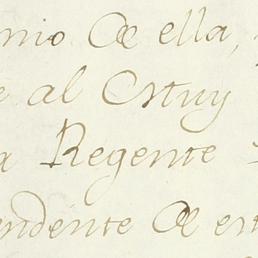 nio de ella,
e al Estuy
a Regente
endente de est